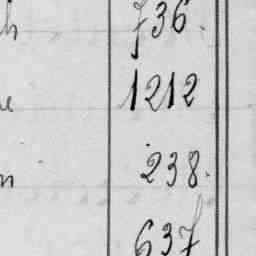 h 736.
e 1212
n 238.
637